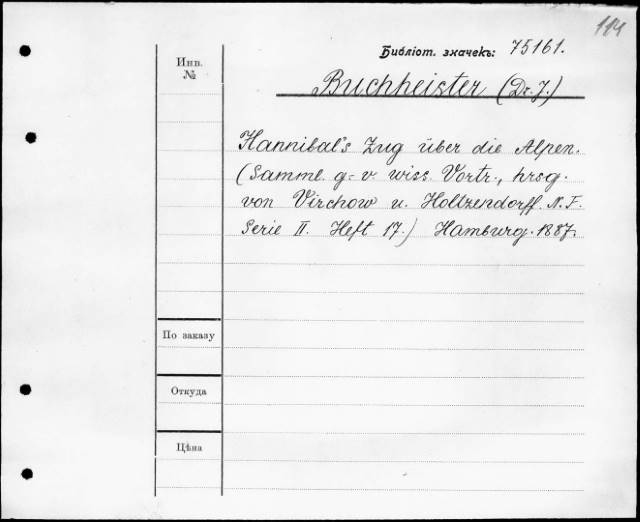 114
Библіот. значекъ: 75161.
Инв.
№
Buchheister (Dr. J.)
Hannibal's Zug über die Alpen.
(Samml. g-v. wiss. Vortr., hrsg.
von Virchow u. Holtzendorff. N. F.
Serie II. Heft 17.) Hamburg. 1887.
По заказу
Откуда
Цѣна